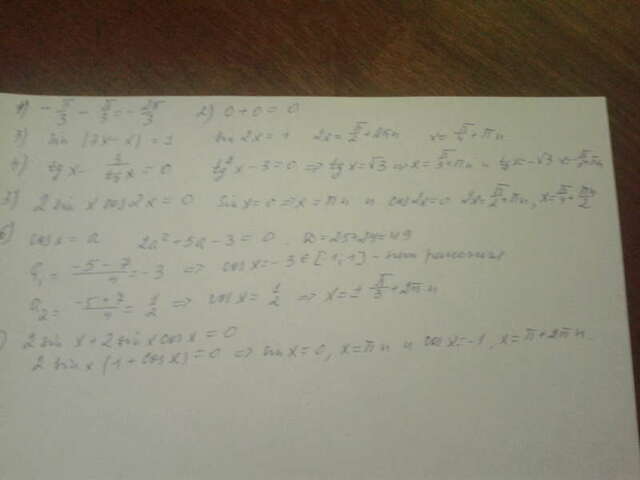 1) -π/3 - π/3 = -2π/3 2) 0+0=0
3) sin (3x-x)=1 sin 2x=1 2x=π/2+2πn x=π/4+πn
4) tg x - 3/tg x = 0 tg²x-3=0 => tg x=√3 => x=π/3+πn и tg x=-√3
5) 2 sin x cos 2x=0 sin x=0 => x=πn и cos 2x=0 2x=π/2+πn, x=π/4+πn/2
cos x=a 2a²+5a-3=0 D=25+24=49
a₁=(-5-7)/4=-3 => cos x=-3 ∈ [-1,1] - нет решения
a₂=(-5+7)/4=1/2 => cos x=1/2 => x=±π/3+2πn
) 2 sin x+2 sin x cos x=0
2 sin x (1+cos x)=0 => sin x=0, x=πn и cos x=-1, x=π+2πn.